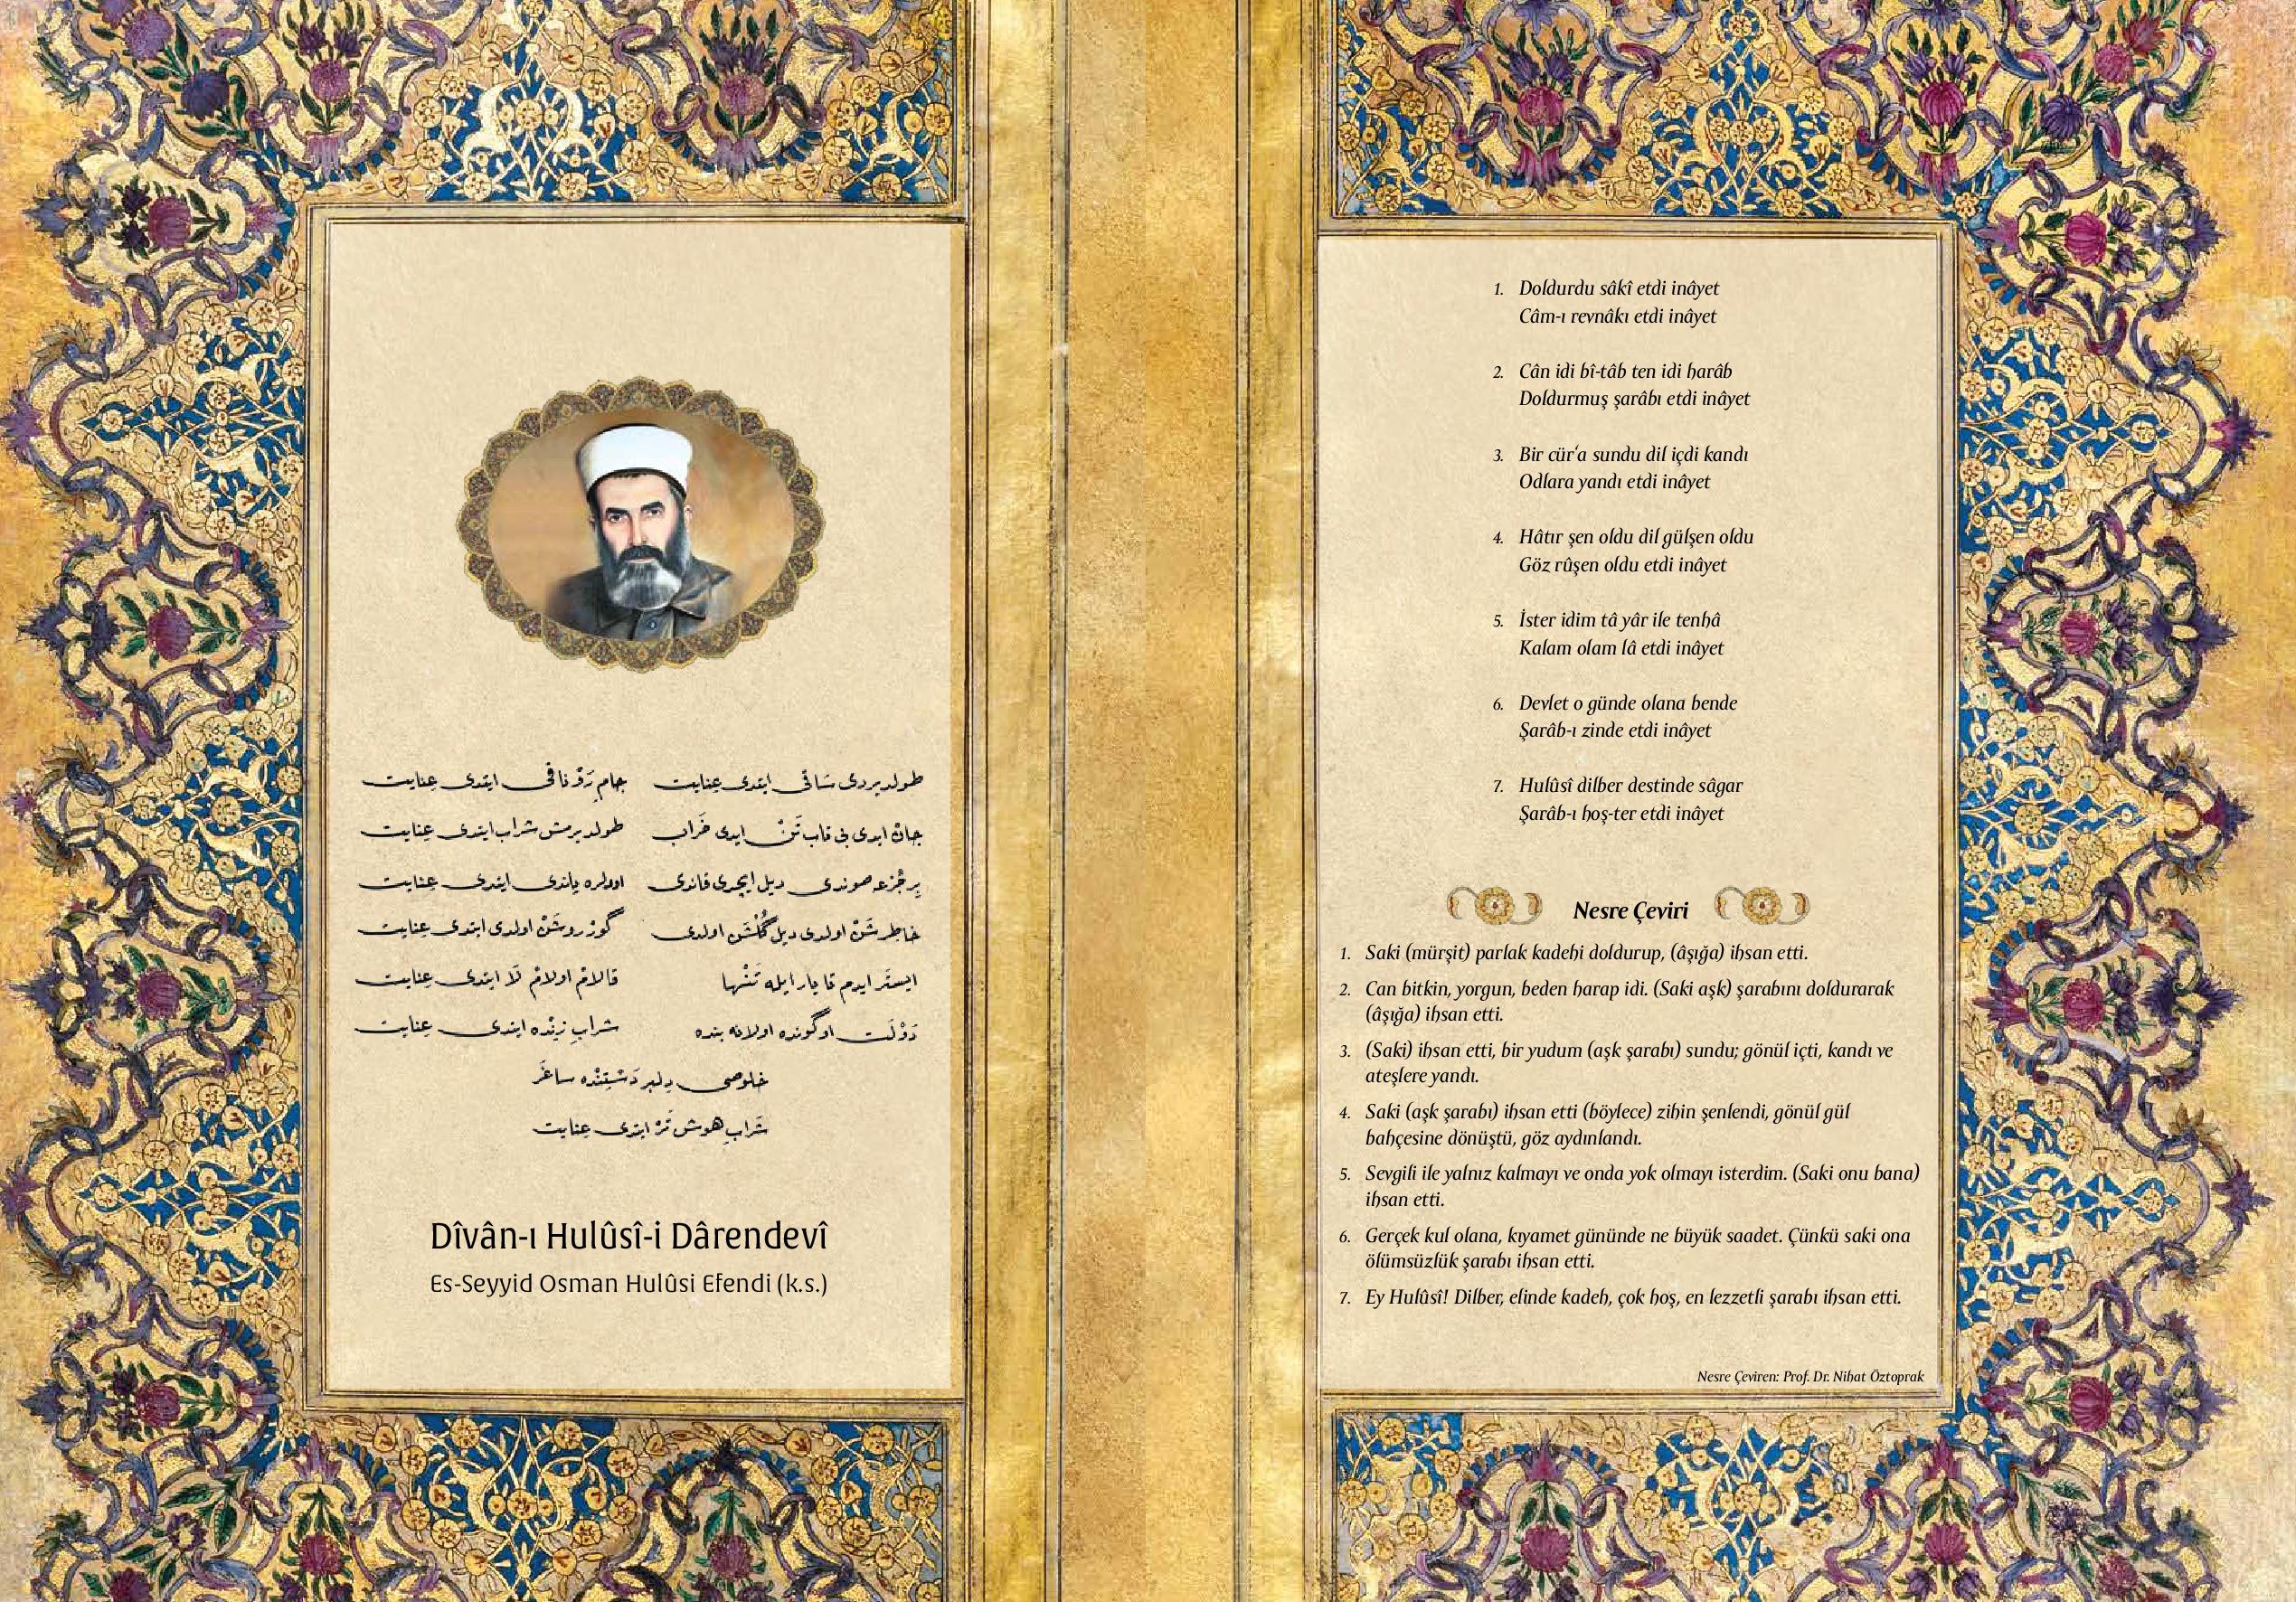 طولديردی سَاقی ايتدی عِنايت جامِ رَوْناقی ايتدی عِنايت
جانْ ايدی بی تاب تَنْ ايدی خَراب طولديرمش شراب ايتدی عِنايت
بِر جُرْعه صوندی ديل ايچدی قاندی اودلره ياندی ايتدی عِنايت
خاطر شَنْ اولدی ديل گُلْشَن اولدی گوز روشَنْ اولدی ايتدی عِنايت
ايستَر ايدم تا يار ايله تَنْها قالامْ اولامْ لَا ايتدی عِنايت
دَوْلَت او گونده اولانه بنده شرابِ زِنْده ايتدی عِنايت
خلوصی دلبر دَسْتِنْده ساغَر
شَرابِ هوش تَرْ ايتدی عِنايت
Dîvân-ı Hulûsî-i Dârendevî
Es-Seyyid Osman Hulûsi Efendi (k.s.)
1. Doldurdu sâkî etdi inâyet
Câm-ı revnâkı etdi inâyet
2. Cân idi bî-tâb ten idi harâb
Doldurmuş şarâbı etdi inâyet
3. Bir cür'a sundu dil içdi kandı
Odlara yandı etdi inâyet
4. Hâtır şen oldu dil gülşen oldu
Göz rûşen oldu etdi inâyet
5. İster idim tâ yâr ile tenhâ
Kalam olam lâ etdi inâyet
6. Devlet o günde olana bende
Şarâb-ı zinde etdi inâyet
7. Hulûsî dilber destinde sâgar
Şarâb-ı hoş-ter etdi inâyet
Nesre Çeviri
1. Saki (mürşit) parlak kadehi doldurup, (âşığa) ihsan etti.
2. Can bitkin, yorgun, beden harap idi. (Saki aşk) şarabını doldurarak
(âşığa) ihsan etti.
3. (Saki) ihsan etti, bir yudum (aşk şarabı) sundu; gönül içti, kandı ve
ateşlere yandı.
4. Saki (aşk şarabı) ihsan etti (böylece) zihin şenlendi, gönül gül
bahçesine dönüştü, göz aydınlandı.
5. Sevgili ile yalnız kalmayı ve onda yok olmayı isterdim. (Saki onu bana)
ihsan etti.
6. Gerçek kul olana, kıyamet gününde ne büyük saadet. Çünkü saki ona
ölümsüzlük şarabı ihsan etti.
7. Ey Hulûsî! Dilber, elinde kadeh, çok hoş, en lezzetli şarabı ihsan etti.
Nesre Çeviren: Prof. Dr. Nihat Öztoprak